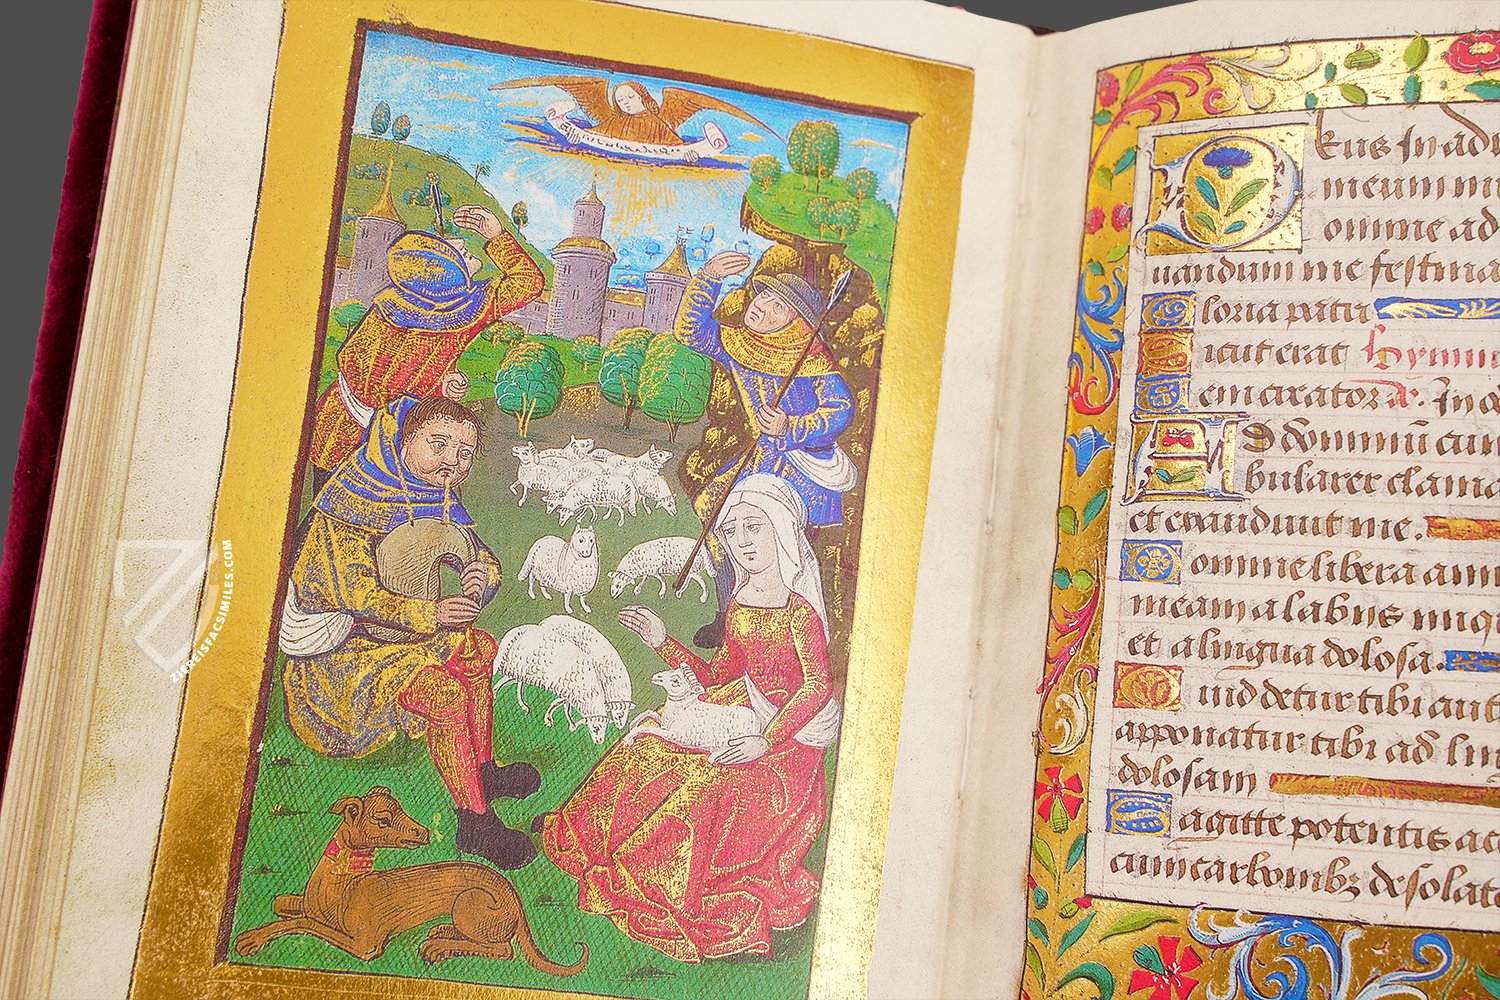 Deus in adiu
meum in
omine ad
uandum me festina
loria patri
icut erat Hymnu
em creator
Ad dominū cum
bularer clama
et exaudiuit me.
omine libera anim
meam a labiis iniqu
et a lingua dolosa.
uid detur tibi aut
apponatur tibi ad lin
dolosam
Sagitte potentis ac
cum carbonibz desolato
ZIEREISFACSIMILES.COM